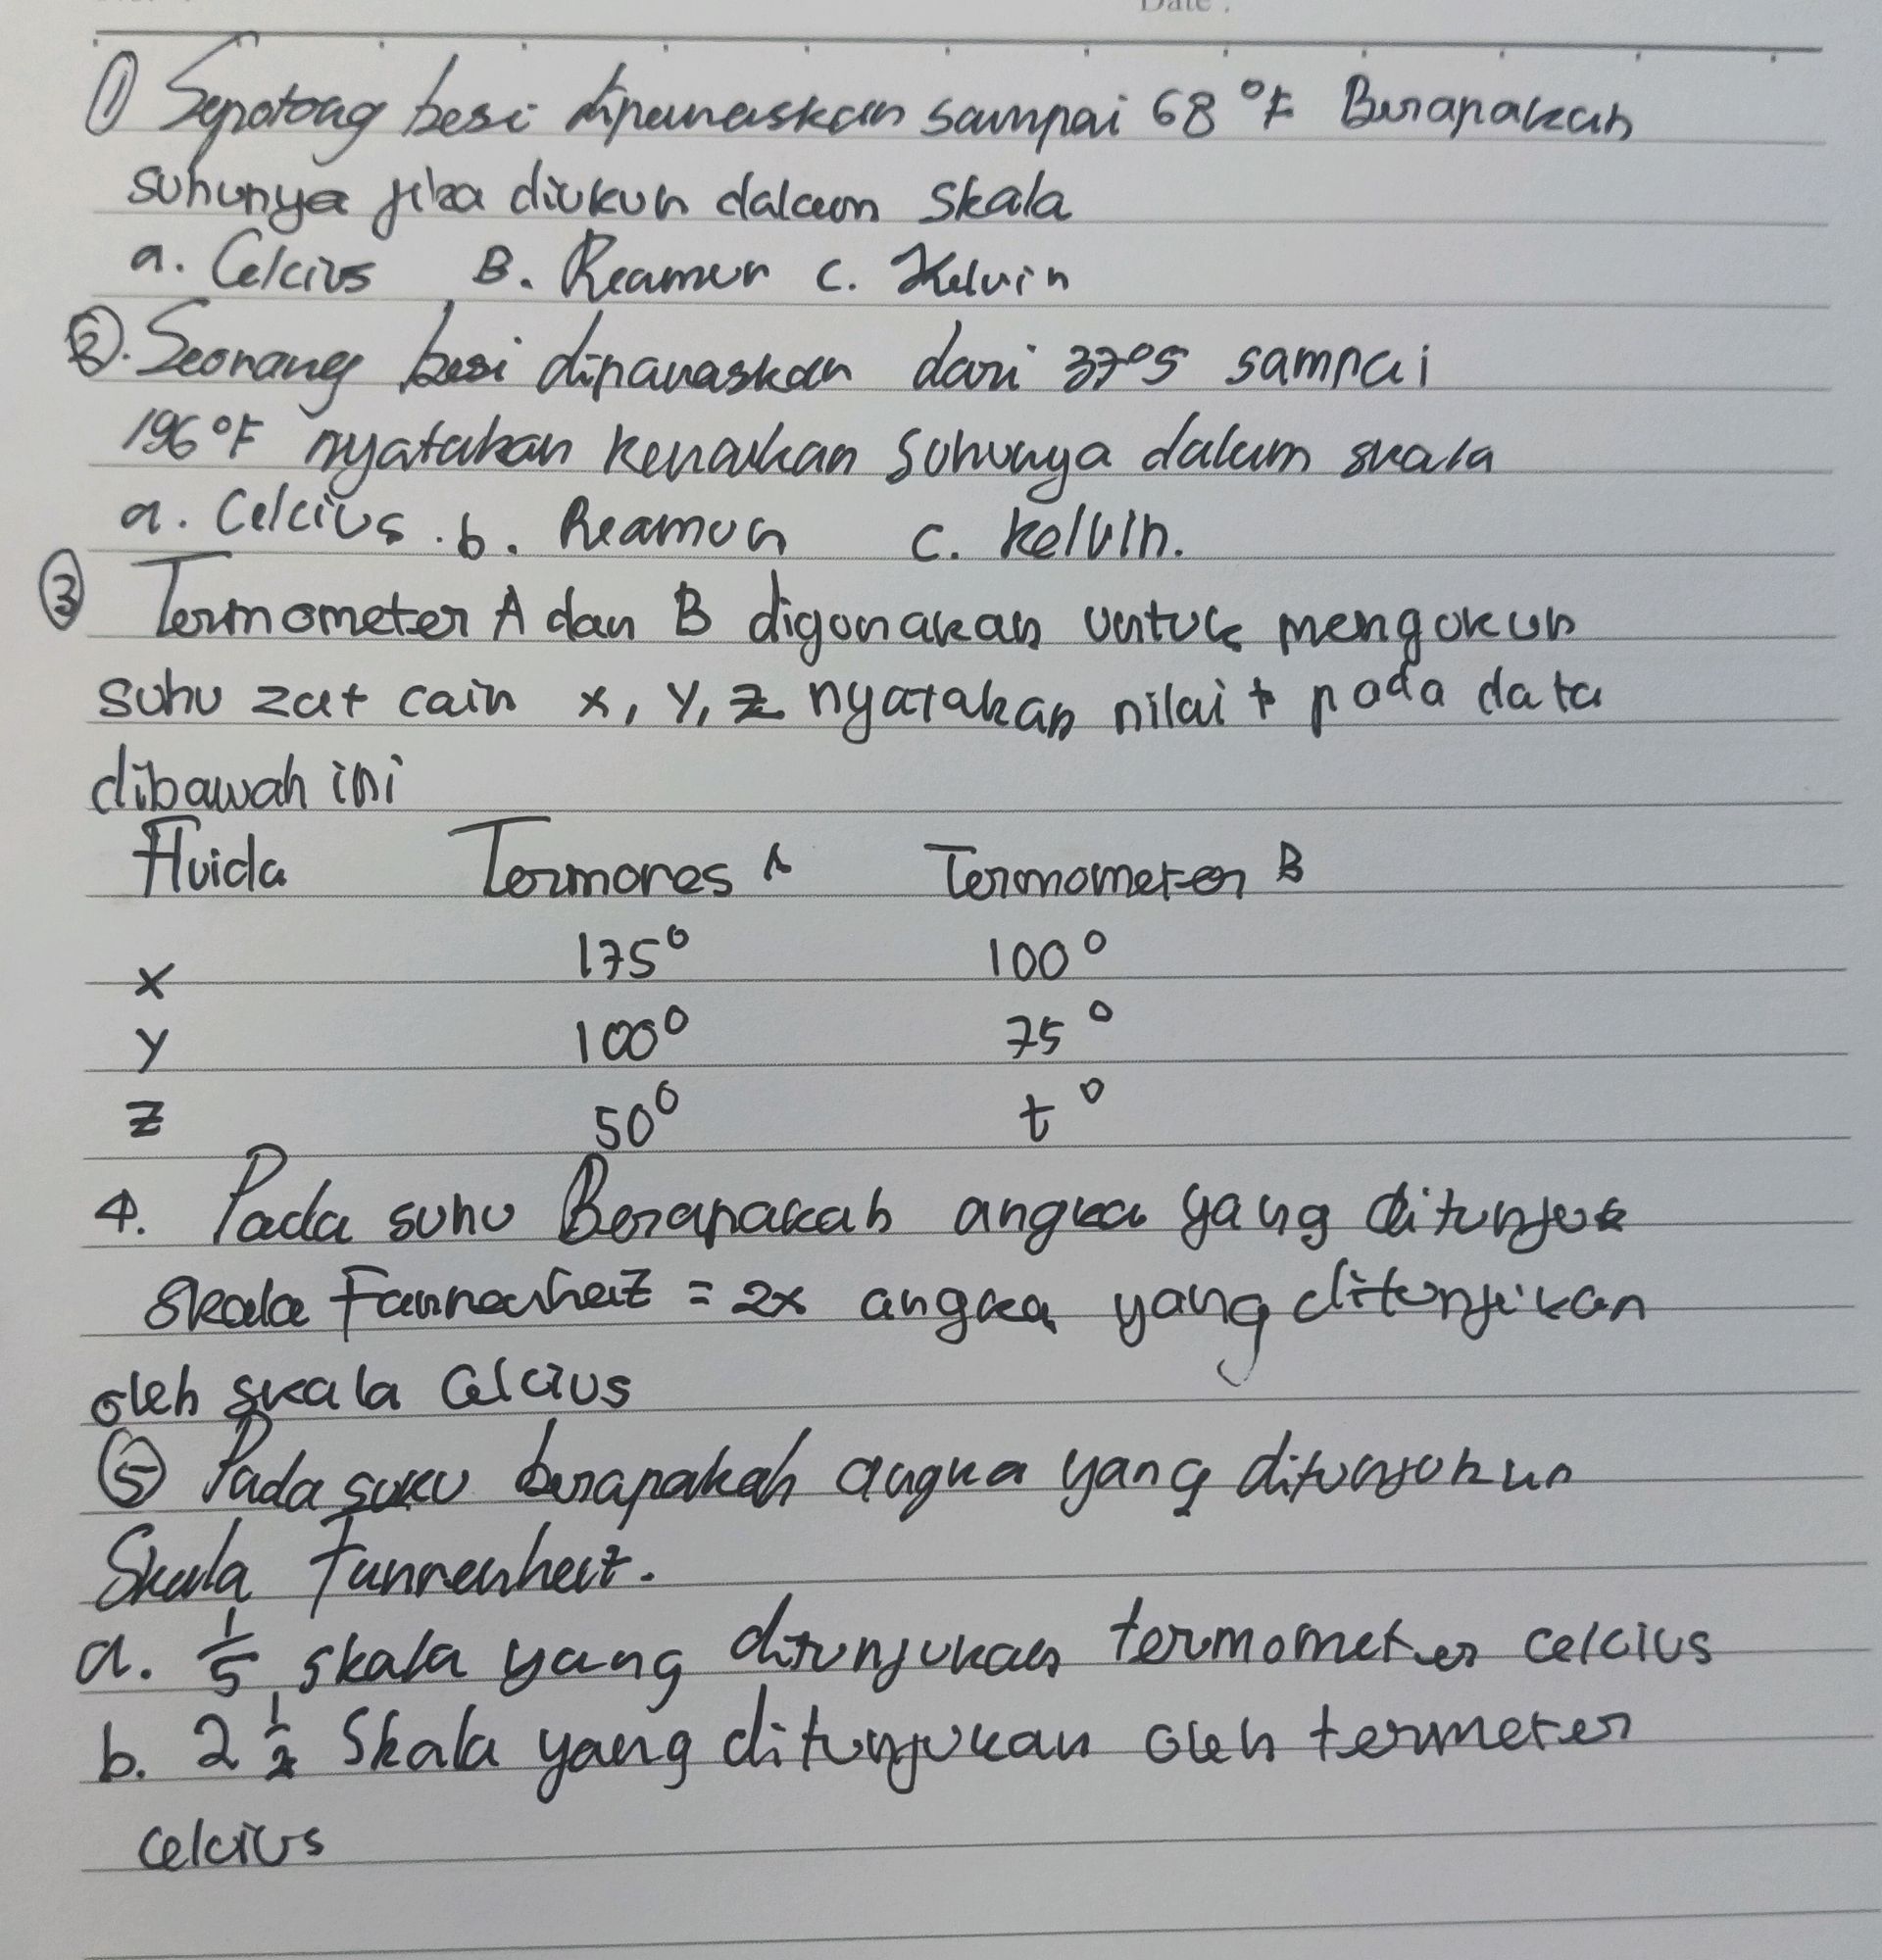 Date :
① Sepotong besi dipanaskan sampai 68 °F Berapakah
suhunya jika diukur dalam skala
a. Celcius B. Reamur c. Kelvin
②. Seorang besi dipanaskan dari 37°F sampai
196°F nyatakan kenaikan suhunya dalam skala
a. Celcius . b. Reamur c. kelvin.
③ Termometer A dan B digunakan untuk mengukur
suhu zat cair x, y, z nyatakan nilai t pada data
dibawah ini
Fluida A Termometer B
x 175° 100°
y 100° 75°
z 50° t°
4. Pada suhu Berapakah angka yang ditunjuk
skala Fahrenheit = 2x angka yang ditunjukan
oleh skala Celcius
⑤ Pada suhu berapakah angka yang ditunjukan
Skala Fahrenheit.
a. 1/5 skala yang ditunjukan termometer celcius
b. 2 1/2 skala yang ditunjukan oleh termeter
celcius